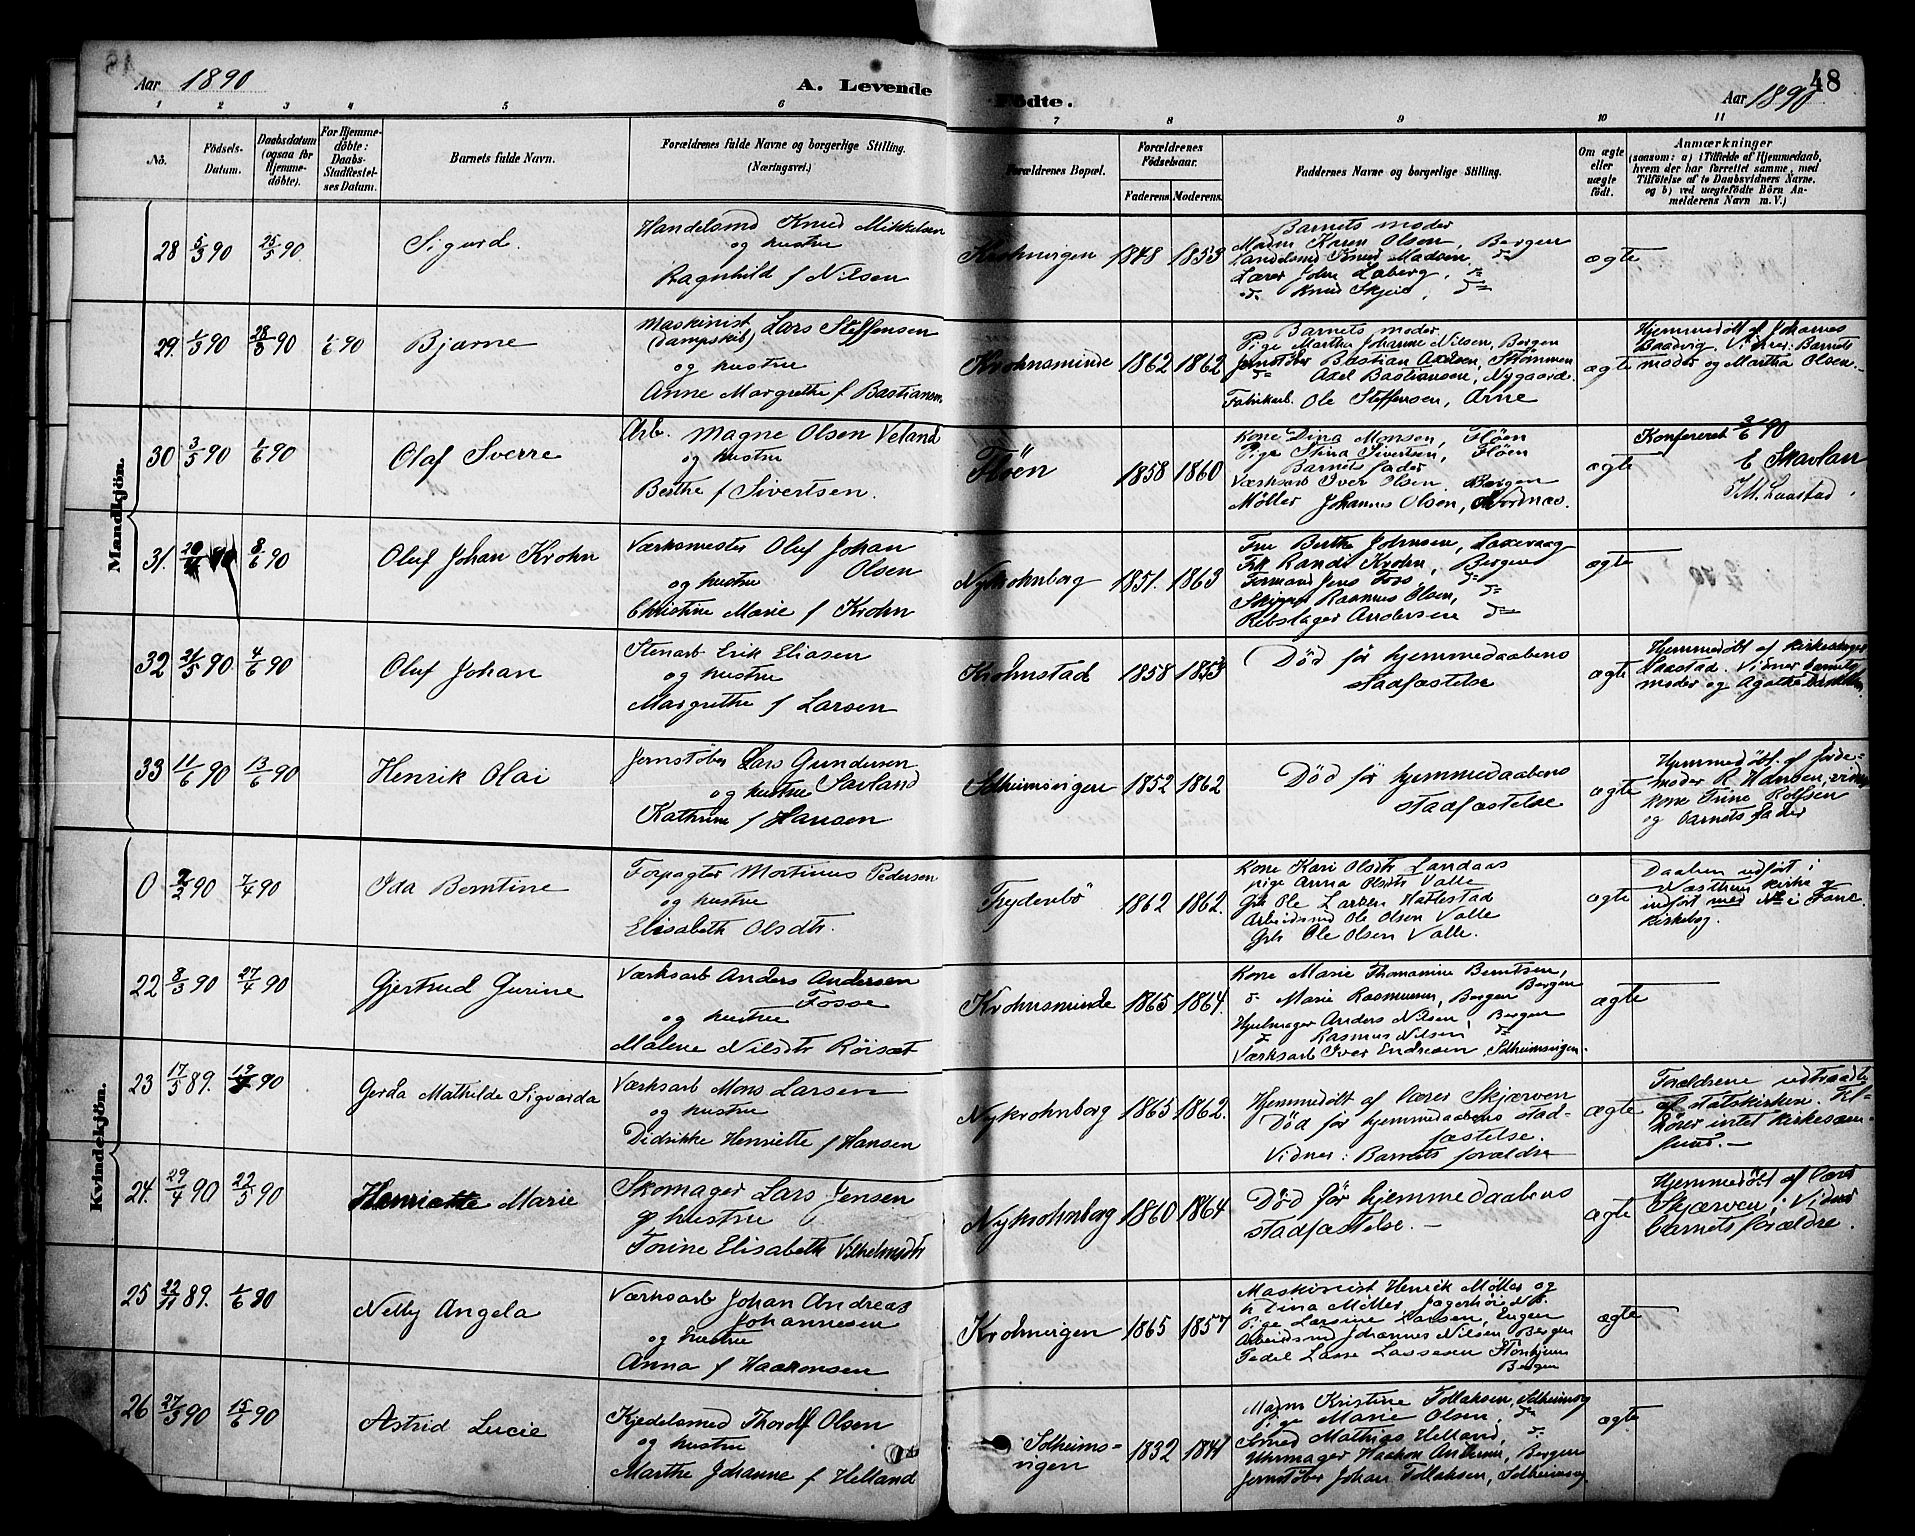 Aar 1890
A. Levende
Fødte.
Aar 1890
48
1 2 3 4 5 6 7 8 9 10 11
No.
Fødsels-
Datum.
Daabsdatum
(ogsaa for
Hjemme-
døbte).
For Hjemme-
døbte:
Daabs-
Stadfæstel-
ses Datum.
Barnets fulde Navn.
Forældrenes fulde Navne og borgerlige Stilling.
(Næringsvei.)
Forældrenes Bopæl.
Forældrenes
Fødselsaar.
Faderens. Moderens.
Faddernes Navne og borgerlige Stilling.
Om ægte
eller
uægte
født.
Anmærkninger
(saasom: a) i Tilfælde af Hjemmedaab,
hvem der har forrettet samme, med
Tilføielse af to Daabsvidners Navne,
og b) ved uægtefødte Børn An-
melderens Navn m. V.)
Mandkjön.
28 5/3 90 25/5 90
Sigurd.
Handelsmd Knud Mikkelsen
og hustru
Ragnhild f Nilsen
Krohnvigen 1848 1853
Barnets moder
Madm Karen Olsen, Bergen
Handelsmd Knud Madsen
Lærer John Laberg,
do Knud Skjeie,
ægte
29. 1/3 90 28/3 90 1/6 90
Bjarne
Maskinist Lars Steffensen
(dampskib)
og hustru
Anne Margrethe f Bastiansen
Krohnsminde 1862 1862
Barnets moder
Pige Martha Johanne Nilsen, Bergen
Jernstøber Bastian Axelsen, Strømmen
Axel Bastiansen, Nygaard.
Fabrikarb. Ole Steffensen, Arne
ægte
Hjemmedøbt af Johannes
Vidner: Barnets
moder og Martha Olsen.
30 3/5 90 1/6 90
Olaf Sverre
Arb. Magne Olsen Veland
og hustru
Berthe f Sivertsen.
Fløen 1858 1860
Kone Dina Monsen, Fløen
Pige Stina Sivertsen, Fløen
Barnets fader
Værksarb Iver Olsen. Bergen
Møller Johannes Olsen, Nordnæs.
ægte
Konfereret 3/6 90
E Skavlan
31. 8/6 90
Oluf Johan Krohn
Værksmester Oluf Johan
Olsen
og hustru
Christine Marie f Krohn
Nykrohnborg 1851. 1863
Fru Berthe Johnsen, Laxevaag
Frk Randi Krohn, Bergen
Formand Jens Foss,
Skipper Rasmus Olsen,
Rebslager Andersen
ægte
32 21/5 90 4/6 90
Oluf Johan
Stenarb Erik Eliasen
og hustru
Margrethe f Larsen
Krohnstad 1858 1853
Død før hjemmedaabens
stadfæstelse
ægte
Hjemmedøbt af kirkesanger
Laastad. Vidner barnets
moder og Agathe
33 11/6 90 13/6 90
Henrik Olai
Jernstøber Lars Gundersen
og hustru Sævland
Kathrine f Hansen
Solheimsvigen 1852 1862
Død før hjemmedaabens
stadfæstelse
ægte
Hjemmedøbt af jorde-
moder R. Hansen, vidner
kone Trine Rolfsen
og barnets fader
Kvindekjön.
0 2/2 90 7/4 90
Ida Berntine
Forpagter Mortinus Pedersen
og hustru
Elisabeth Olsdtr.
Frydenbø 1862 1862.
Kone Kari Olsdtr Landaas
pige Anna Olsdtr Valle
Gbr Ole Larsen Hattestad
Arbeidsmd Ole Olsen Valle
Gbr Ole Olsen Valle.
ægte
Daaben udført i
kirke og
indført med No i Fane
kirkebog.
22 8/3 90 27/4 90
Gjertrud Gurine
Værksarb Anders Andersen
Fosse
og hustru
Malene Nilsdtr Röisæt
Krohnsminde 1865 1864.
Kone Marie Thomamine Berntsen,
Bergen
do Marie Rasmussen, Bergen
Hjulmager Anders Nilsen, Bergen
do Rasmus Nilsen, do
Værksarb Iver Endresen, Solheimsvigen.
ægte
23 17/5 89. 90
Gerda Mathilde Sigvarda
Værksarb Mons Larsen
og hustru
Didrikke Henriette f Hansen
Nykrohnborg 1865 1862.
Hjemmedøbt af lærer Skjærven
Død før hjemmedaabens stad-
fæstelse.
Vidner: Barnets forældre
ægte
Forældrene udtraadte
af statskirken. Til-
hører intet kirkesam-
fund.
24. 29/4 90 22/5 90
Henriette Marie
Skomager Lars Jensen
og hustru
Torine Elisabeth Vilhelmsdtr
Nykrohnborg 1860 1864
Død før hjemmedaabens
stadfæstelse.
ægte
Hjemmedøbt af lærer
Skjærven; Vidner
barnets forældre.
25 22/11 89. 1/6 90
Nelly Angela
Værksarb Johan Andreas
Johannesen
og hustru
Anna f Haakonsen
Krohnvigen 1865 1857
Maskinist Henrik Møller og
h Dina Møller,
Pige Larsine Larsen, Engen
Arbeidsmd Johannes Nilsen, Bergen
Pedel Lasse Lassesen
Bergen
ægte
26 27/3 90 15/6 90
Astrid Lucie
Kjedelsmed Thorolf Olsen
og hustru
Marthe Johanne f Helland
Solheims-
vigen 1832 1841
Madm Kristine Tollaksen, Solheimsvig
Pige Marie Olsen, do
Smed Mathias Helland, do
Uhrmager Haakon, Bergen
Jernstøber Johan Tollaksen, Solheimsvig
ægte